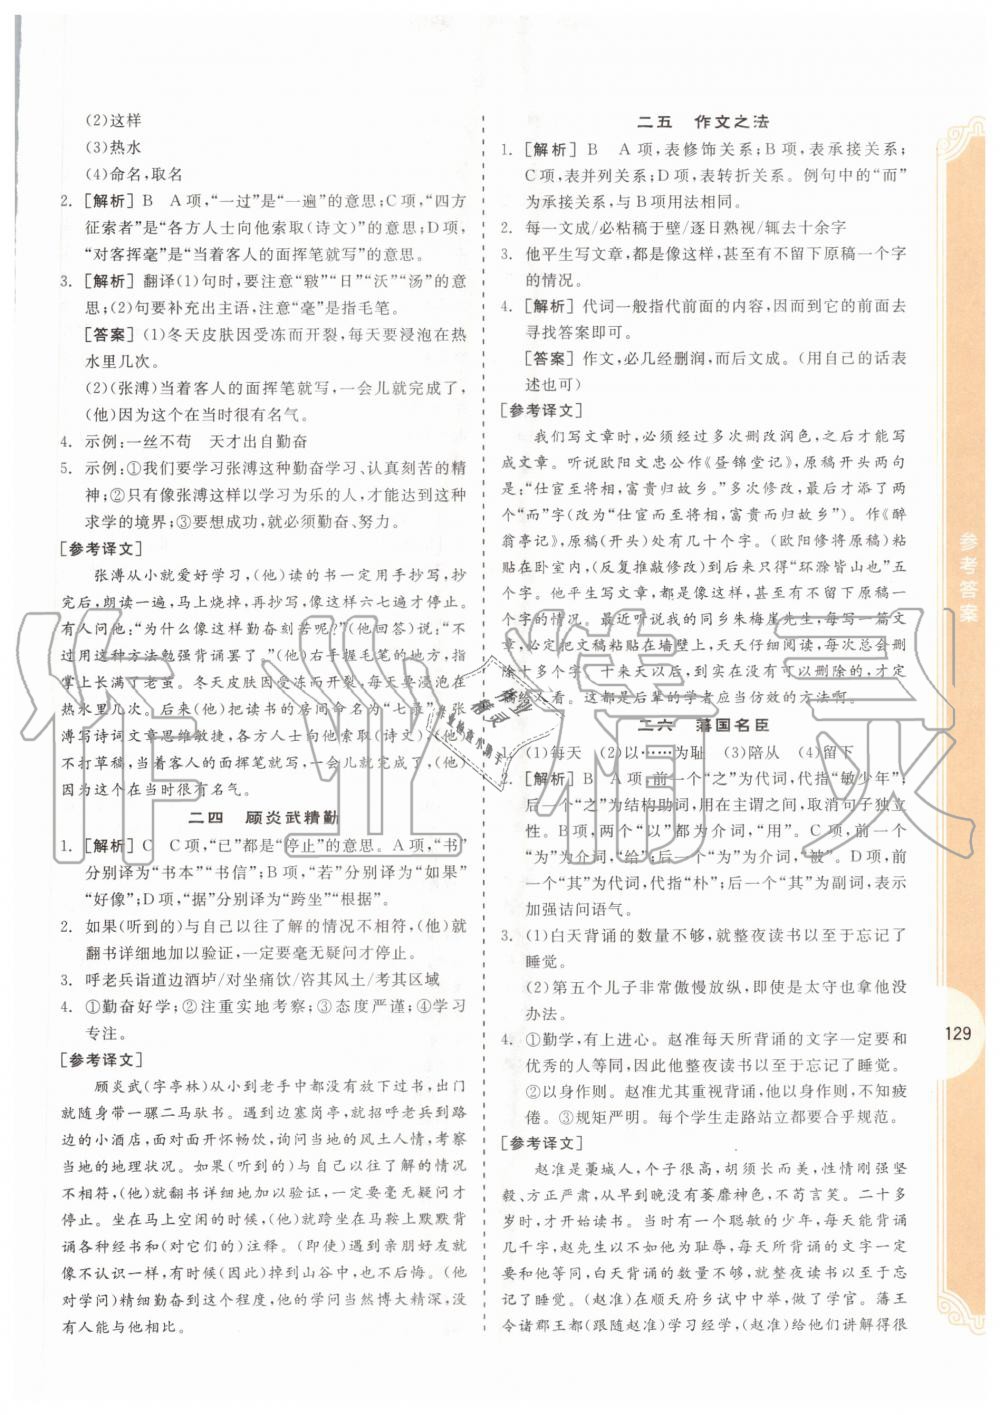 (2)这样
(3)热水
(4)命名,取名
2. [解析] B A项,“一过”是“一遍”的意思;C项,“四方
征索者”是“各方人士向他索取(诗文)”的意思;D项,
“对客挥毫”是“当着客人的面挥笔就写”的意思。
3. [解析] 翻译(1)句时,要注意“皲”“日”“沃”“汤”的意
思;(2)句要补充出主语,注意“毫”是指毛笔。
[答案] (1)冬天皮肤因受冻而开裂,每天要浸泡在热
水里几次。
(2)(张溥)当着客人的面挥笔就写,一会儿就完成了,
(他)因为这个在当时很有名气。
4. 示例:一丝不苟 天才出自勤奋
5. 示例:①我们要学习张溥这种勤奋学习、认真刻苦的精
神;②只有像张溥这样以学习为乐的人,才能达到这种
求学的境界;③要想成功,就必须勤奋、努力。
[参考译文]
张溥从小就爱好学习,(他)读的书一定用手抄写,抄
完后,朗读一遍,马上烧掉,再抄写,像这样六七遍才停止。
有人问他:“为什么像这样勤奋刻苦呢?”(他回答)说:
“用这种方法勉强背诵罢了。(他)右手握毛笔的地方,手指
掌上长满了老茧。冬天皮肤因受冻而开裂,每天要浸泡在
热水里几次。后来(他)把读书的房间命名为“七录”,张
溥写诗词文章思维敏捷,各方人士向他索取(诗文),(他)
不打草稿,当着客人的面挥笔就写,一会儿就完成了,(他)
因为这个在当时很有名气。
二四 顾炎武精勤
1. [解析] C C项,“已”都是“停止”的意思。A项,“书”
分别译为“书本”“书信”;B项,“若”分别译为“如果”
“好像”;D项,“据”分别译为“跨坐”“根据”。
2. 如果(听到的)与自己以往了解的情况不相符,(他)就
翻书详细地加以验证,一定要毫无疑问才停止。
3. 呼老兵诣道边酒垆/对坐痛饮/咨其风土/考其区域
4. ①勤奋好学;②注重实地考察;③态度严谨;④学习
专注。
[参考译文]
顾炎武(字亭林)从小到老手中都没有放下过书,出门
就随身带一骡二马驮书。遇到边塞岗亭,就招呼老兵到路
边的小酒店,面对面开怀畅饮,询问当地的风土人情,考察
当地的地理状况。如果(听到的)与自己以往了解的情况
不相符,(他)就翻书详细地加以验证,一定要毫无疑问才
停止。坐在马上空闲的时候,(他)就跨坐在马鞍上默默背
诵各种经书和(对它们的)注释。(即使)遇到亲朋好友就
像不认识一样,有时候(因此)掉到山谷中,也不后悔。(他
对学问)精细勤奋到这个程度,他的学问当然博大精深,没
有人能与他相比。
二五 作文之法
1. [解析] B A项,表修饰关系;B项,表承接关系;
C项,表并列关系;D项,表转折关系。例句中的“而”
为承接关系,与B项用法相同。
2. 每一文成/必粘稿于壁/逐日熟视/辄去十余字
3. 他平生写文章,都是像这样,甚至有不留下原稿一个字
的情况。
4. [解析] 代词一般指代前面的内容,因而到它的前面去
寻找答案即可。
[答案] 作文,必几经删润,而后文成。(用自己的话表
述也可)
[参考译文]
我们写文章时,必须经过多次删改润色,之后才能写
成文章。听说欧阳文忠公作《昼锦堂记》,原稿开头两句
是:“仕宦至将相,富贵归故乡。”多次修改,最后改定,只增
两个“而”字(改为“仕宦而至将相,富贵而归故乡”)。作《醉
翁亭记》,原稿(开头)处有几十个字。(欧阳修将原稿)粘
贴在卧室内,(反复推敲修改)到最后只用“环滁皆山也”五
个字。他平生写文章,都是像这样,甚至有不留下原稿一
个字的情况。最近听说我的同乡朱梅崖先生,每写一篇文
章,必定把文稿粘贴在墙壁上,天天仔细阅读,每次总会删
除十多个字。十来天以后,直到没有可以删除的,才定
稿给人看。这些都是后辈的学者应当仿效的方法啊。
二六 藩国名臣
1. (1)每天 (2)以……为耻 (3)陪从 (4)留下
2. [解析] B A项,前一个“之”为代词,代指“敏少年”;后
一个“之”为结构助词,用在主谓之间,取消句子独立
性。B项,两个“以”都为介词,“用”。C项,前一个
“为”为介词,“给”;后一个“为”为介词,“被”。D项,前
一个“其”为代词,代指“朴”;后一个“其”为副词,表示
加强诘问语气。
3. (1)白天背诵的数量不够,就整夜读书以至于忘记了
睡觉。
(2)第五个儿子非常傲慢放纵,即使是太守也拿他没
办法。
4. ①勤学,有上进心。赵准每天所背诵的文字一定要和
优秀的人等同,他因此整夜读书以至于忘记了睡觉。
②以身作则。赵准尤其重视背诵,他以身作则,不知疲
倦。③规矩严明。每个学生走路站立都要合乎规范。
[参考译文]
赵准是藁城人,个子很高,胡须长而美,性情刚强坚
毅、方正严肃,从早到晚没有萎靡神色,不苟言笑。二十多
岁时,才开始读书。当时有一个聪敏的少年,每天能背诵
几千字,赵先生以不如他为耻辱,每天所背诵的文字一定要
和他等同。白天背诵的数量不够,就整夜读书以至于忘记
了睡觉。(赵准)在顺天府乡试中中举,做了学官。藩王
令诸郡王都(跟随赵准)学习经学,(赵准)给他们讲解得很
参考答案
129
作业精灵